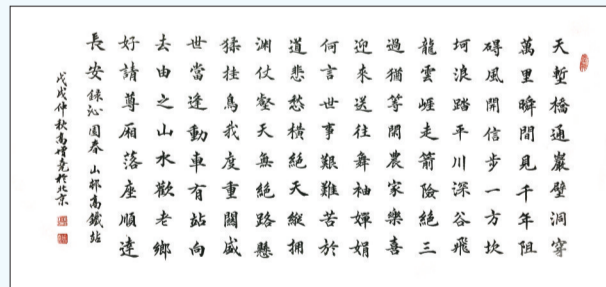 天塹橋通巖壁洞穿
萬里瞬間見千年阻
礙風開信步一方坎
坷浪踏平川深谷飛
龍雲崕走箭險絕三
過猶等閒農家樂喜
迎來送往舞袖嬋娟
何言世事艱難苦於
道悲愁橫絕天縱拥
渊仗壑天無絕路懸
猱挂鳥我度重關盛
世當逢動車有站向
去由之山水歡老鄉
好請尊厢落座順達
長安 錄沁園春 山村高鐵站
戊戌仲秋高增堯於北京